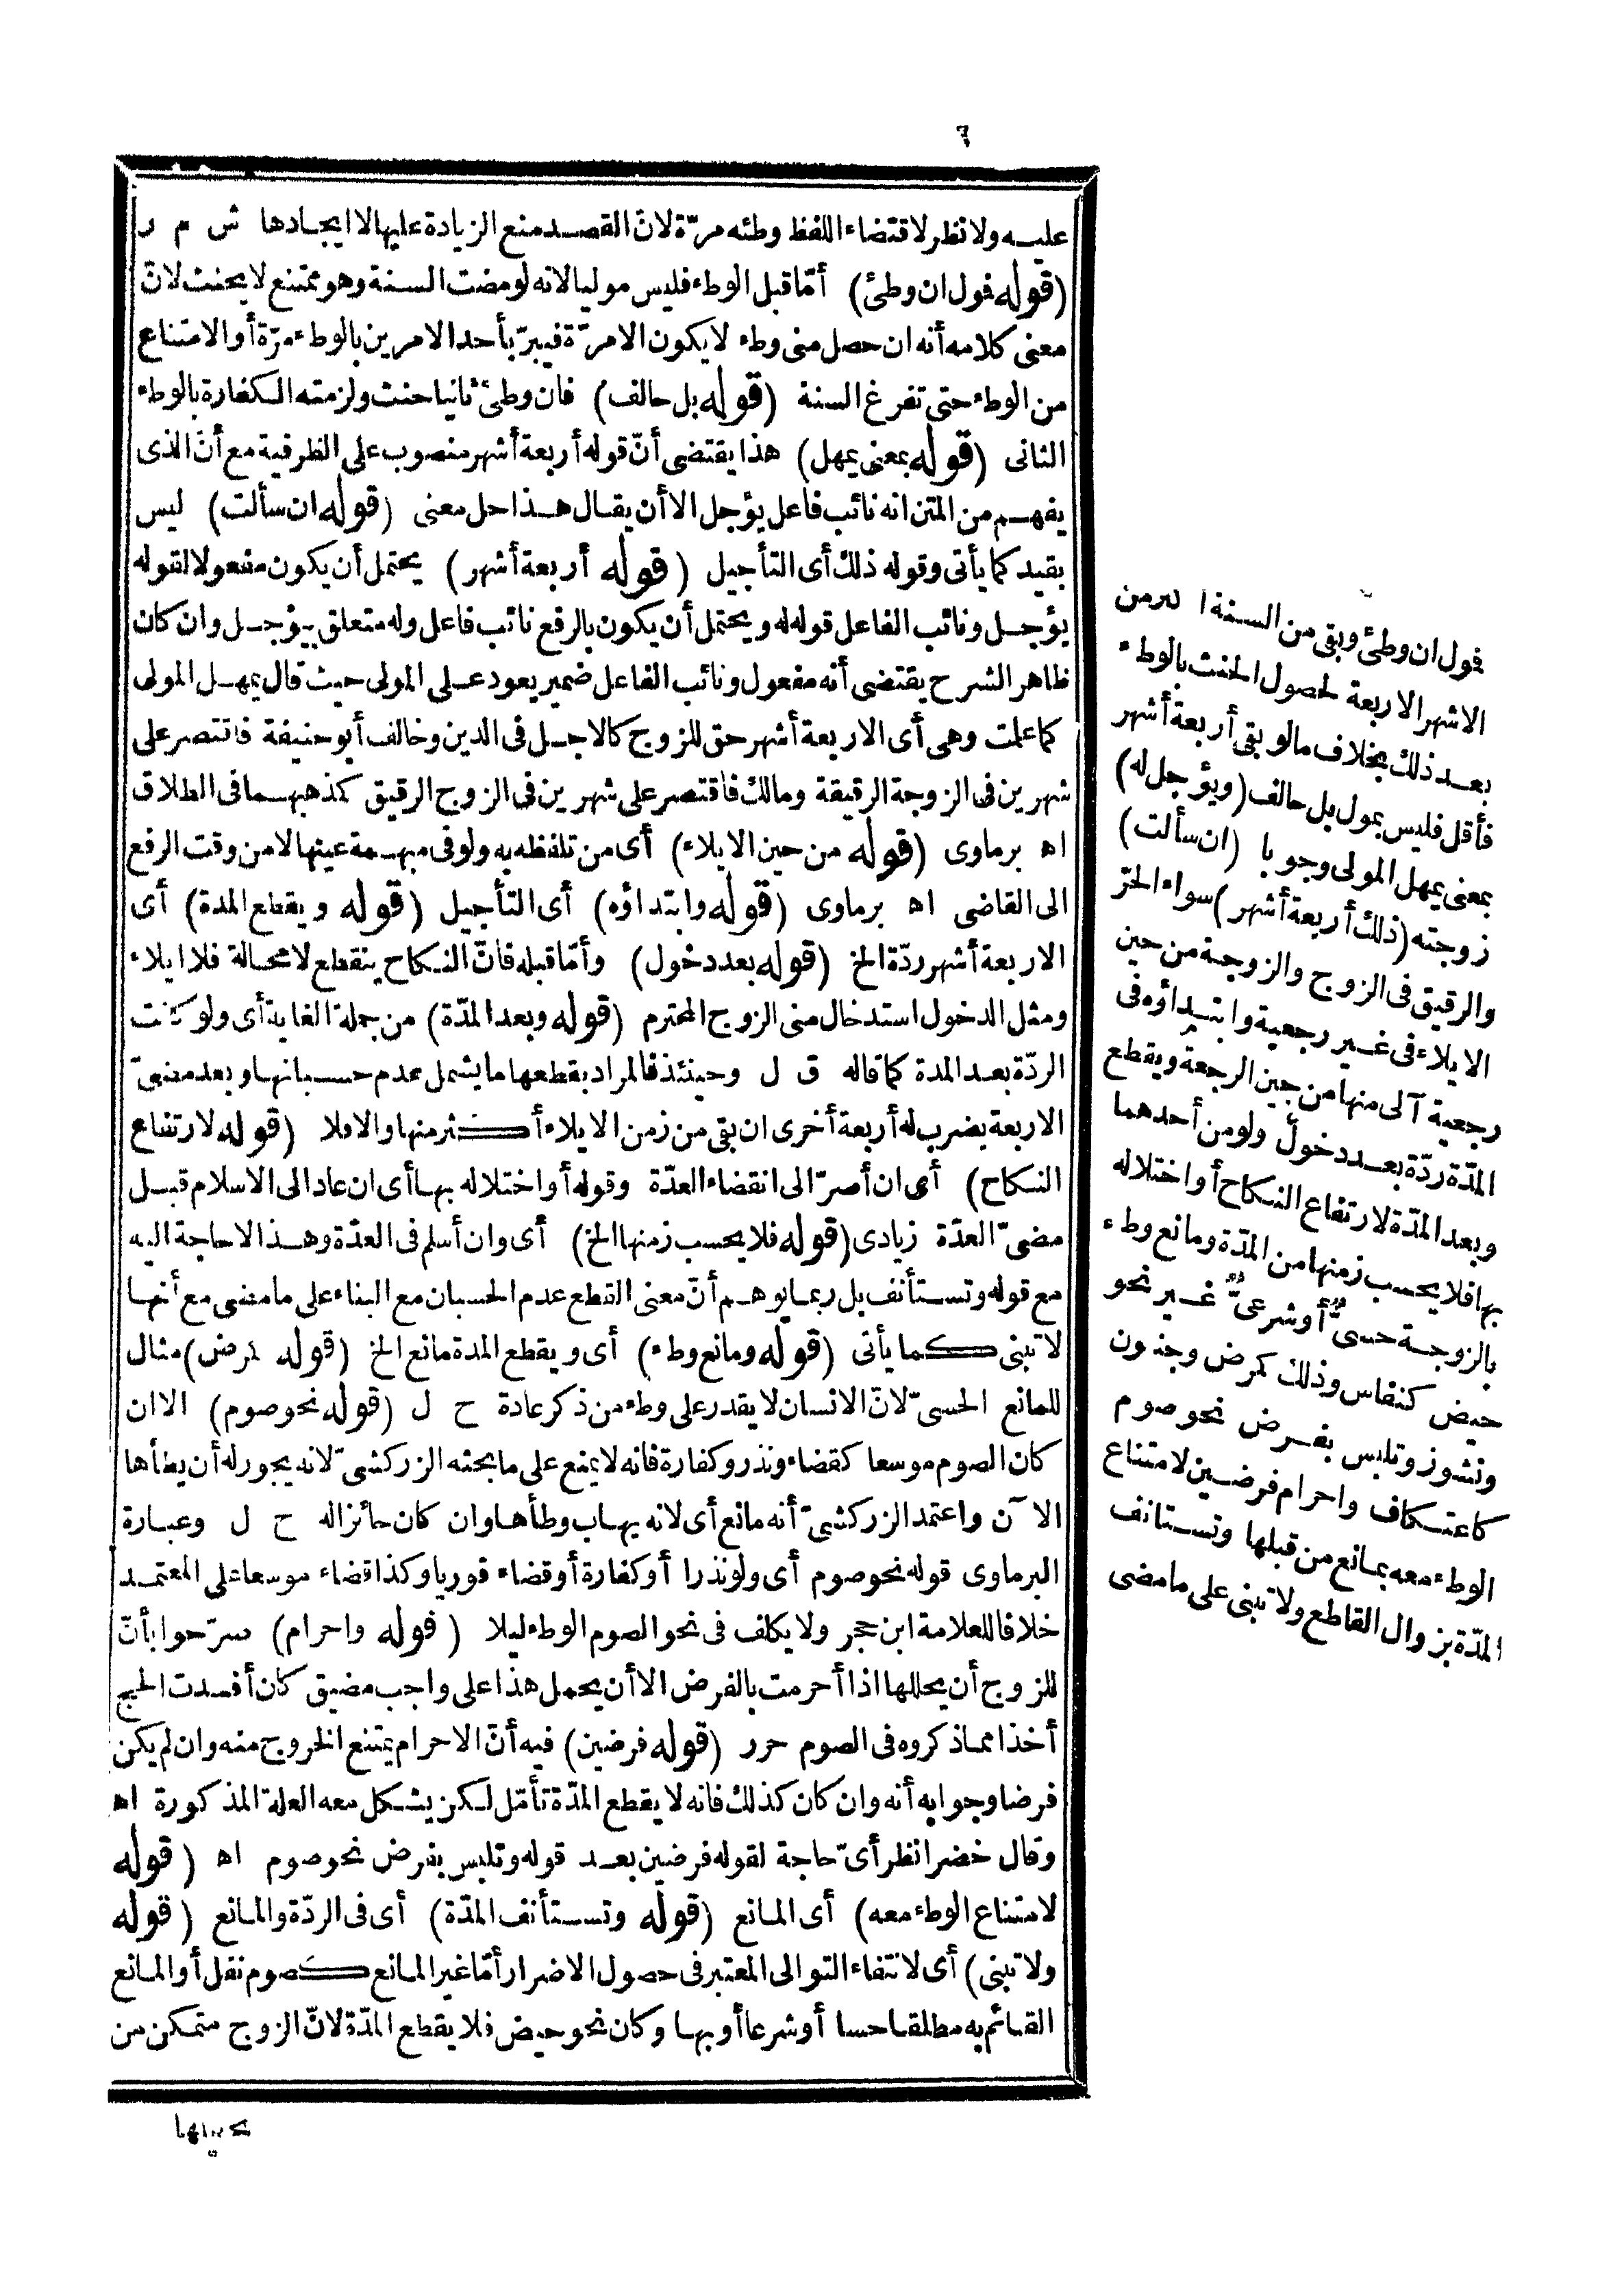 ٦
عليه ولا نظر لاقتضاء اللفظ وطئه مرّة لانّ القصد منع الزيادة عليها لا ايجادها ش م ر
(قوله فول ان وطئ) أمّا قبل الوطء فليس موليا لانه لو مضت السنة وهو ممتنع لا يحنث لانّ
معنى كلامه أنه ان حصل منى وطء لا يكون الا مرّة فيبرّ بأحد الامرين بالوطء مرّة أو الامتناع
من الوطء حتى تفرغ السنة (قوله بل حالف) فان وطئ ثانيا حنث ولزمته الكفارة بالوطء
الثانى (قوله بمعنى يمهل) هذا يقتضى أنّ قوله أربعة أشهر منصوب على الظرفية مع أنّ الذى
يفهم من المتن انه نائب فاعل يؤجل الا أن يقال هذا حل معنى (قوله ان سألت) ليس
بقيد كما يأتى وقوله ذلك أى التأجيل (قوله أربعة أشهر) يحتمل أن يكون مفعولا لقوله
يؤجل ونائب الفاعل قوله له ويحتمل أن يكون بالرفع نائب فاعل وله متعلق بيؤجل وان كان
ظاهر الشرح يقتضى أنه مفعول ونائب الفاعل ضمير يعود على المولى حيث قال يمهل المولى
كما علمت وهى أى الاربعة أشهر حق للزوج كالاجل فى الدين وخالف أبو حنيفة فاقتصر على
شهرين فى الزوجة الرقيقة ومالك فاقتصر على شهرين فى الزوج الرقيق كمذهبهما فى الطلاق
اه برماوى (قوله من حين الايلاء) أى من تلفظه به ولو فى مبهمة عينها لا من وقت الرفع
الى القاضى اه برماوى (قوله وابتداؤه) أى التأجيل (قوله ويقطع المدة) أى
الاربعة أشهر ردّة الخ (قوله بعد دخول) وأمّا قبله فانّ النكاح ينقطع لا محالة فلا ايلاء
ومثل الدخول استدخال منى الزوج المحترم (قوله وبعد المدّة) من جملة الغاية أى ولو كانت
الردّة بعد المدة كما قاله ق ل وحينئذ فالمراد بقطعها ما يشمل عدم حسبانها وبعد مضىّ
الاربعة يضرب له أربعة أخرى ان بقى من زمن الايلاء أكثر منها والا فلا (قوله لارتفاع
النكاح) أى ان أصرّ الى انقضاء العدّة وقوله أو اختلاله بها أى ان عاد الى الاسلام قبل
مضىّ العدّة زيادى (قوله فلا يحسب زمنها الخ) أى وان أسلم فى العدّة وهذا لا حاجة اليه
مع قوله وتستأنف بل ربما يوهم أنّ معنى القطع عدم الحسبان مع البناء على ما مضى مع أنها
لا تبنى كما يأتى (قوله ومانع وطء) أى ويقطع المدة مانع الخ (قوله كمرض) مثال
للمانع الحسىّ لانّ الانسان لا يقدر على وطء من ذكر عادة ح ل (قوله نحو صوم) الا ان
كان الصوم موسعا كقضاء ونذر وكفارة فانه لا يمنع على ما بحثه الزركشىّ لانه يجوز له أن يطأها
الآن واعتمد الزركشىّ أنه مانع أى لانه يهاب وطأها وان كان جائزا له ح ل وعبارة
البرماوى قوله نحو صوم أى ولو نذرا أو كفارة أو قضاء فوريا وكذا قضاء موسعا على المعتمد
خلافا للعلامة ابن حجر ولا يكلف فى نحو الصوم الوطء ليلا (قوله واحرام) صرّحوا بأنّ
للزوج أن يحللها اذا أحرمت بالفرض الا أن يحمل هذا على واجب مضيق كان أفسدت الحج
أخذا مما ذكروه فى الصوم حرر (قوله فرضين) فيه أنّ الاحرام يمتنع الخروج منه وان لم يكن
فرضا وجوابه أنه وان كان كذلك فانه لا يقطع المدّة تأمّل لكن يشكل معه العلة المذكورة اه
وقال خضر انظر أىّ حاجة لقوله فرضين بعد قوله وتلبس بفرض نحو صوم اه (قوله
لامتناع الوطء معه) أى المانع (قوله وتستأنف المدّة) أى فى الردّة والمانع (قوله
ولا تبنى) أى لانتفاء التوالى المعتبر فى حصول الاضرار أمّا غير المانع كصوم نفل أو المانع
القائم به مطلقا حسا أو شرعا أو بها وكان نحو حيض فلا يقطع المدّة لانّ الزوج متمكن من
فول ان وطئ وبقى من السنة أكثر من
الاشهر الاربعة لحصول الحنث بالوطء
بعد ذلك بخلاف ما لو بقى أربعة أشهر
فأقل فليس بمول بل حالف (ويؤجل له)
بمعنى يمهل المولى وجوبا (ان سألت)
زوجته (ذلك أربعة أشهر) سواء الحرّ
والرقيق فى الزوج والزوجة من حين
الايلاء فى غير رجعية وابتداؤه فى
رجعية آلى منها من حين الرجعة ويقطع
المدّة ردّة بعد دخول ولو من أحدهما
وبعد المدّة لارتفاع النكاح أو اختلاله
بها فلا يحسب زمنها من المدّة ومانع وطء
بالزوجة حسىّ أو شرعىّ غير نحو
حيض كنفاس وذلك كمرض وجنون
ونشوز وتلبس بفرض نحو صوم
كاعتكاف واحرام فرضين لامتناع
الوطء معه بمانع من قبلها وتستانف
المدّة بزوال القاطع ولا تبنى على ما مضى
تحليلها